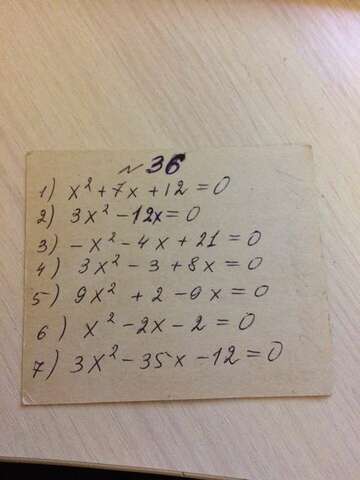 № 36
1) x² + 7x + 12 = 0
2) 3x² - 12x = 0
3) -x² - 4x + 21 = 0
4) 3x² - 3 + 8x = 0
5) 9x² + 2 - 9x = 0
6) x² - 2x - 2 = 0
7) 3x² - 35x - 12 = 0